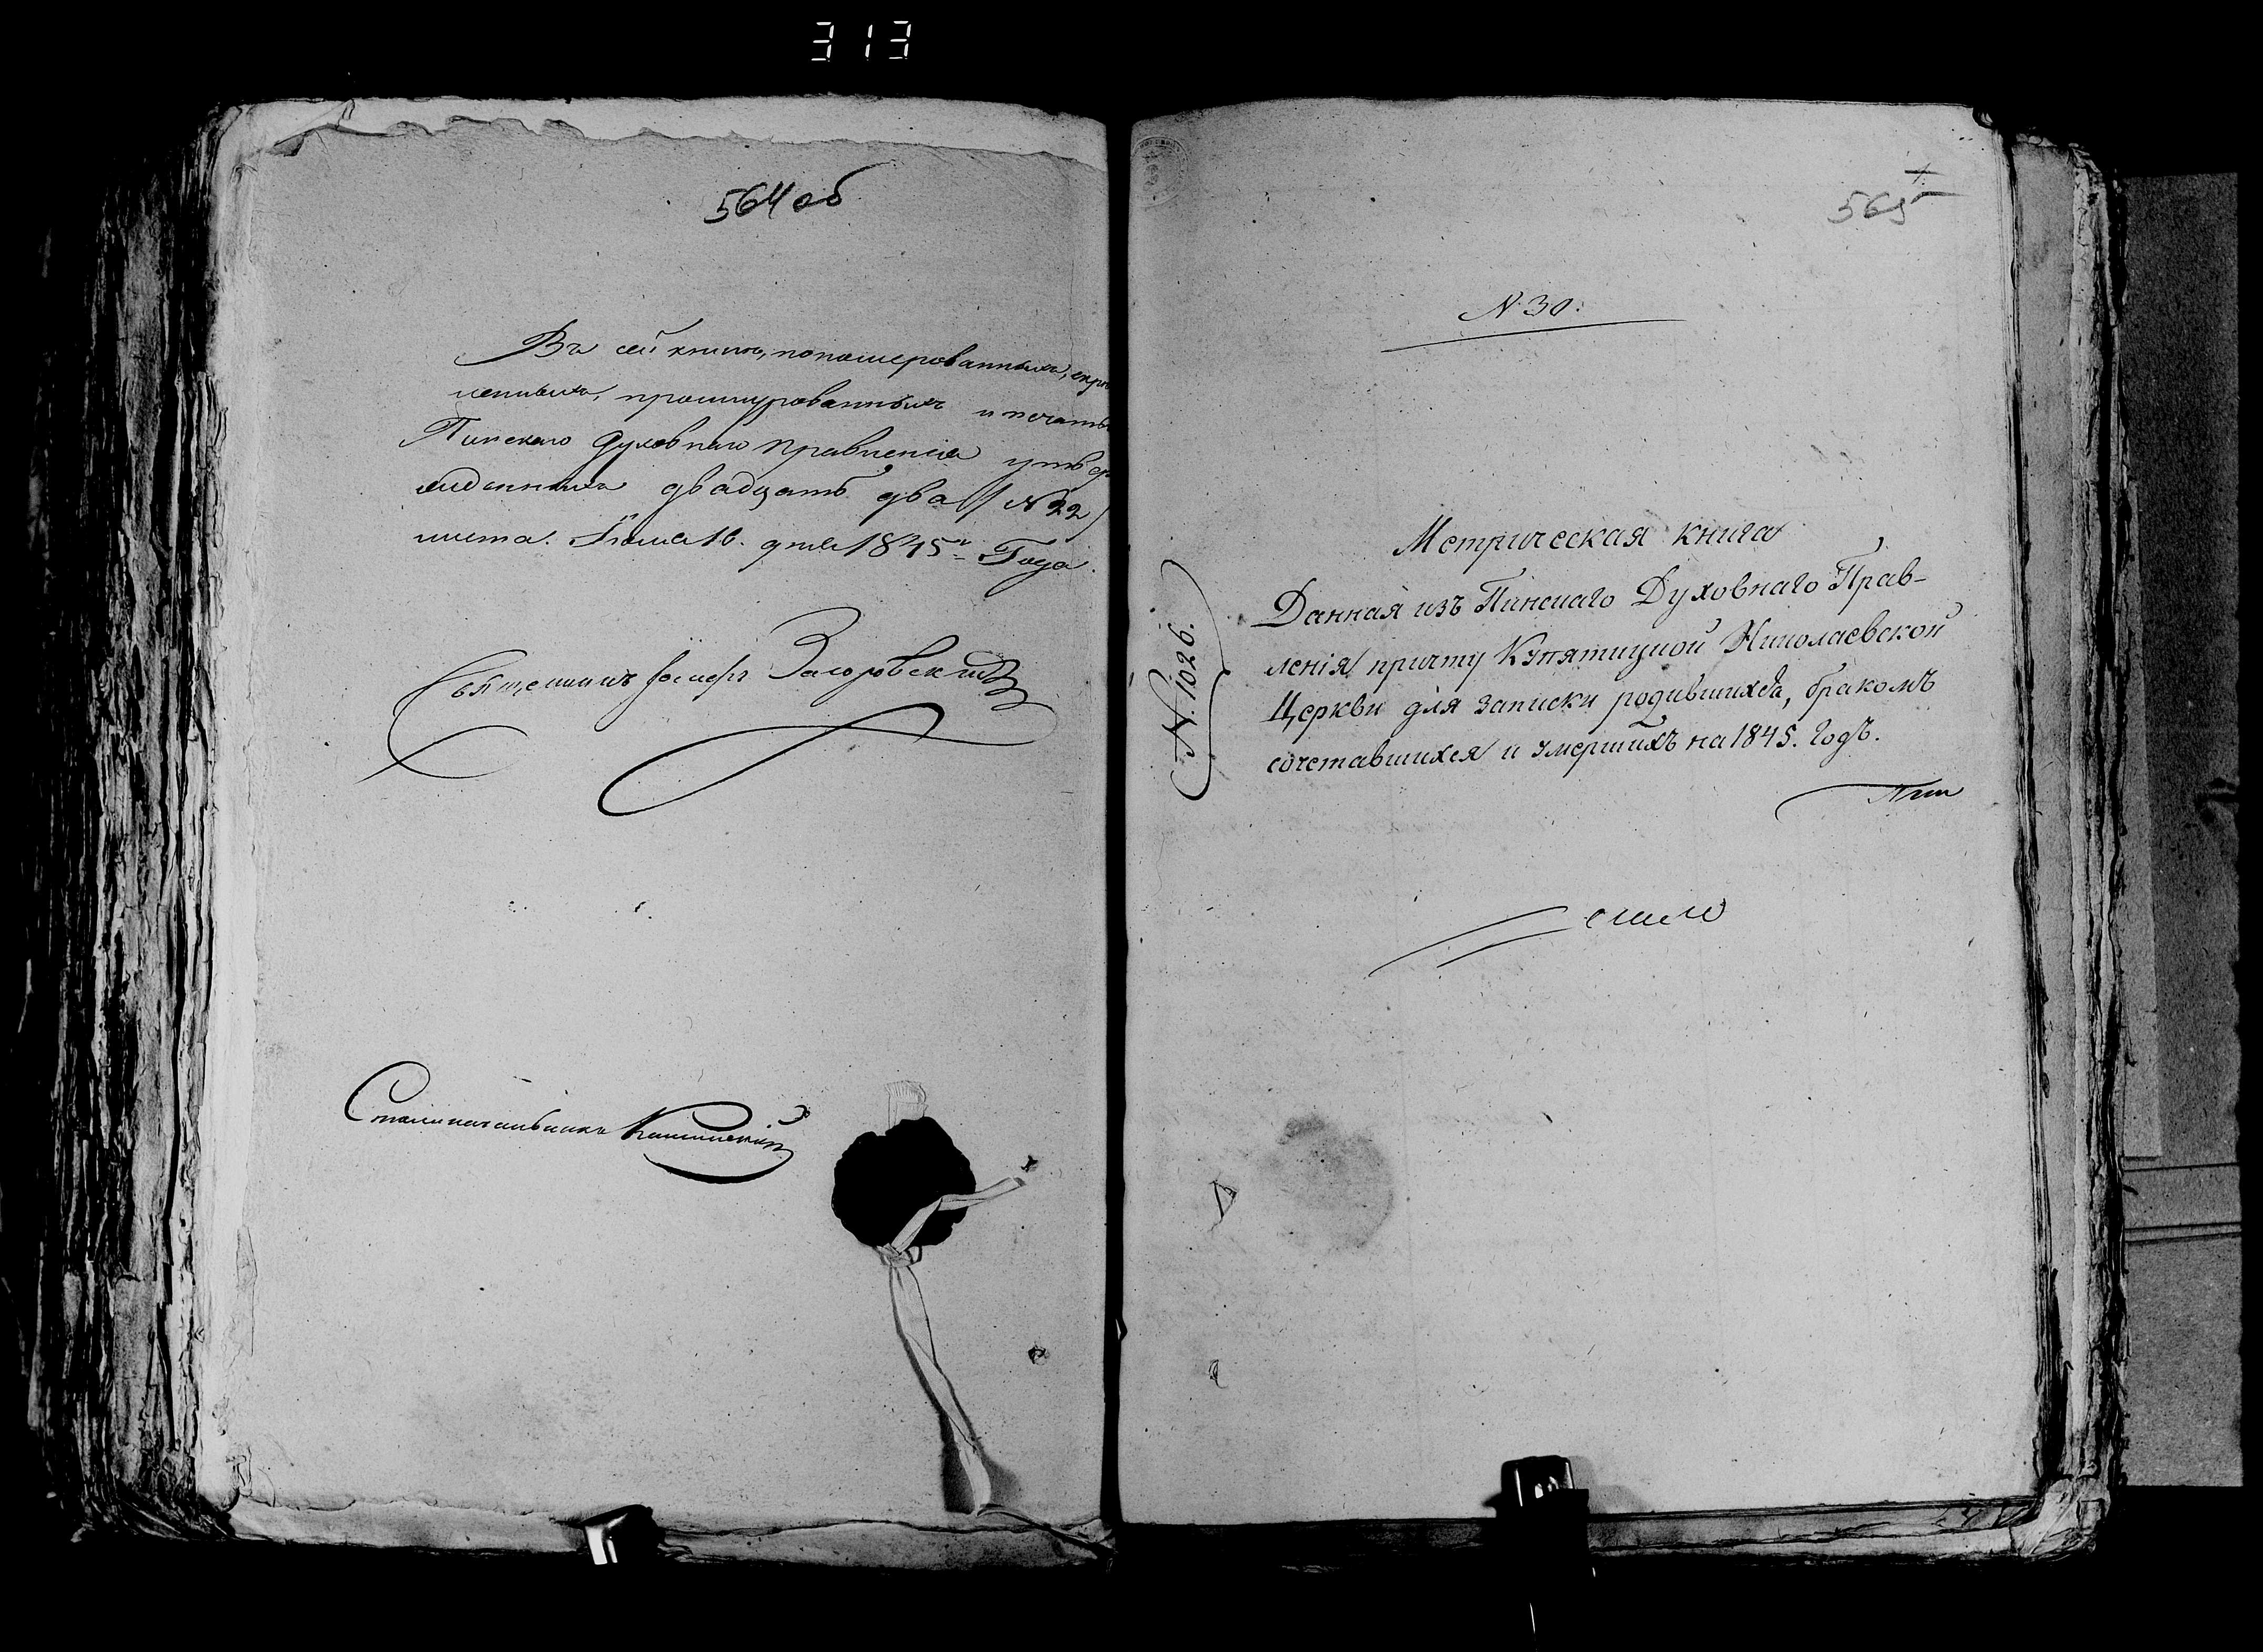 313
564 об
Въ сей книгѣ, пономерованныхъ, скрѣ
пленныхъ, прошнурованныхъ и печатью
Пинскаго Духовнаго Правленія утвер
жденныхъ двадцать два (№ 22)
листа. 16. дня 1845 Года.
Священникъ Іосифъ
Столоначальникъ
565
№ 30.
№ 1026.
Метрическая книга
Данная изъ Пинскаго Духовнаго Прав-
ленія причту Купятицкой Николаевской
Церкви для записки родившихся, бракомъ
сочетавшихся и умершихъ на 1845. годъ.
Пин
скаго